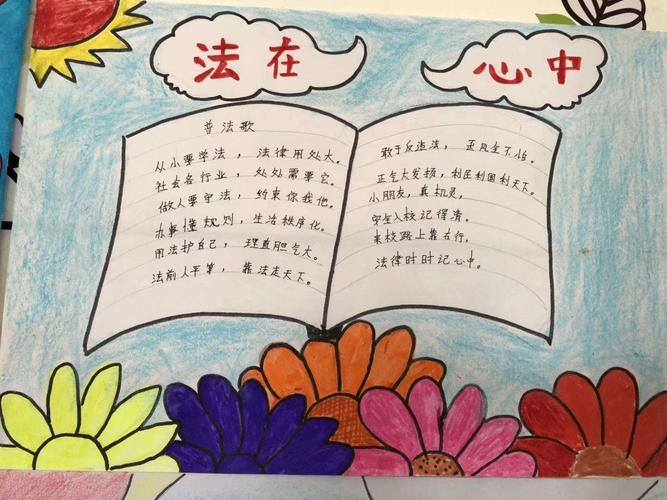 法在心中
普法歌
从小要学法，法律用处大。
社会各行业，处处需要它。
做人要守法，约束你我他。
办事懂规则，生活秩序化。
用法护自己，理直胆气大。
法前人平等，靠法走天下。
敢于反违法，歪风全不怕。
正气大发扬，利民利国利天下。
小朋友，真机灵，
守生入校记得清。
来校路上靠右行，
法律时时记心中。